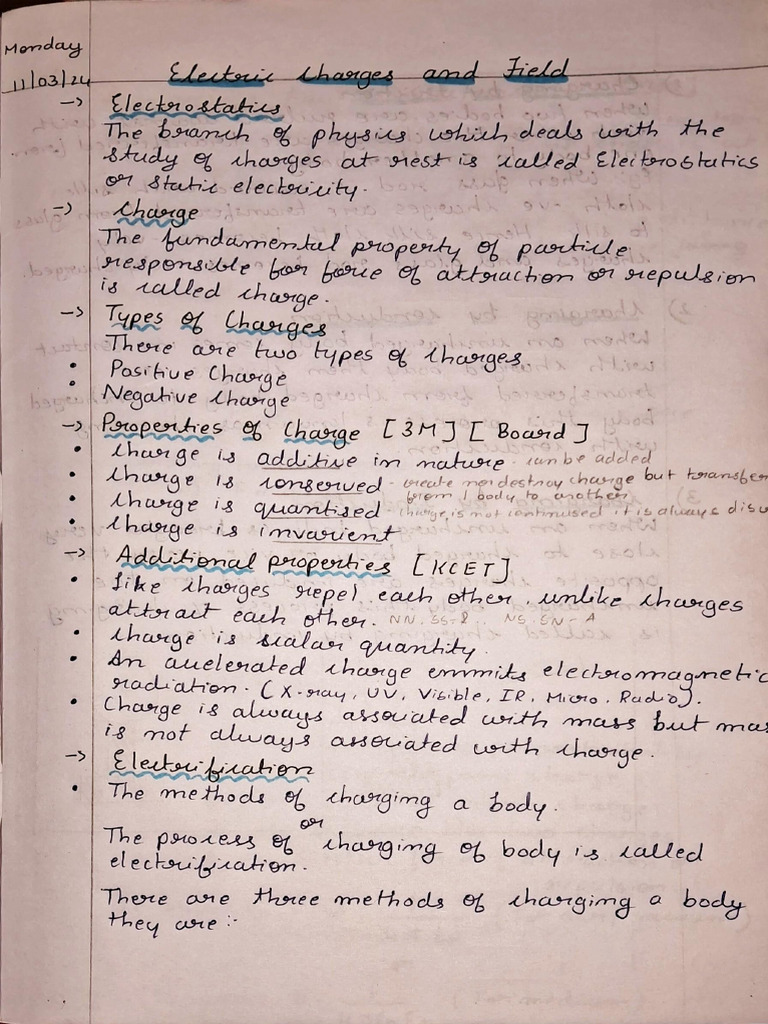 Monday
11/03/24
Electric Charges and Field
-> Electrostatics
The branch of physics which deals with the
study of charges at rest is called Electrostatics
or static electricity.
-> Charge
The fundamental property of particle
responsible for force of attraction or repulsion
is called charge.
-> Types of Charges.
There are two types of charges.
• Positive Charge
• Negative Charge
-> Properties of Charge [3M] [Board]
• Charge is additive in nature - can be added
• Charge is conserved - create nor destroy charge but transfer
from 1 body to another
• Charge is quantised - charge is not continused it is always disc
• Charge is invarient
-> Additional properties [KCET]
• Like charges repel each other, unlike charges
attract each other. NN, SS-R.. NS, SN-A
• Charge is scalar quantity.
• An accelerated charge emmits electromagnetic
radiation. (X-ray, UV, Visible, IR, Micro, Radio).
• Charge is always associated with mass but mas
is not always associated with charge.
-> Electrification
• The methods of charging a body.
or
The process of charging of body is called
electrification.
There are three methods of charging a body
they are :-